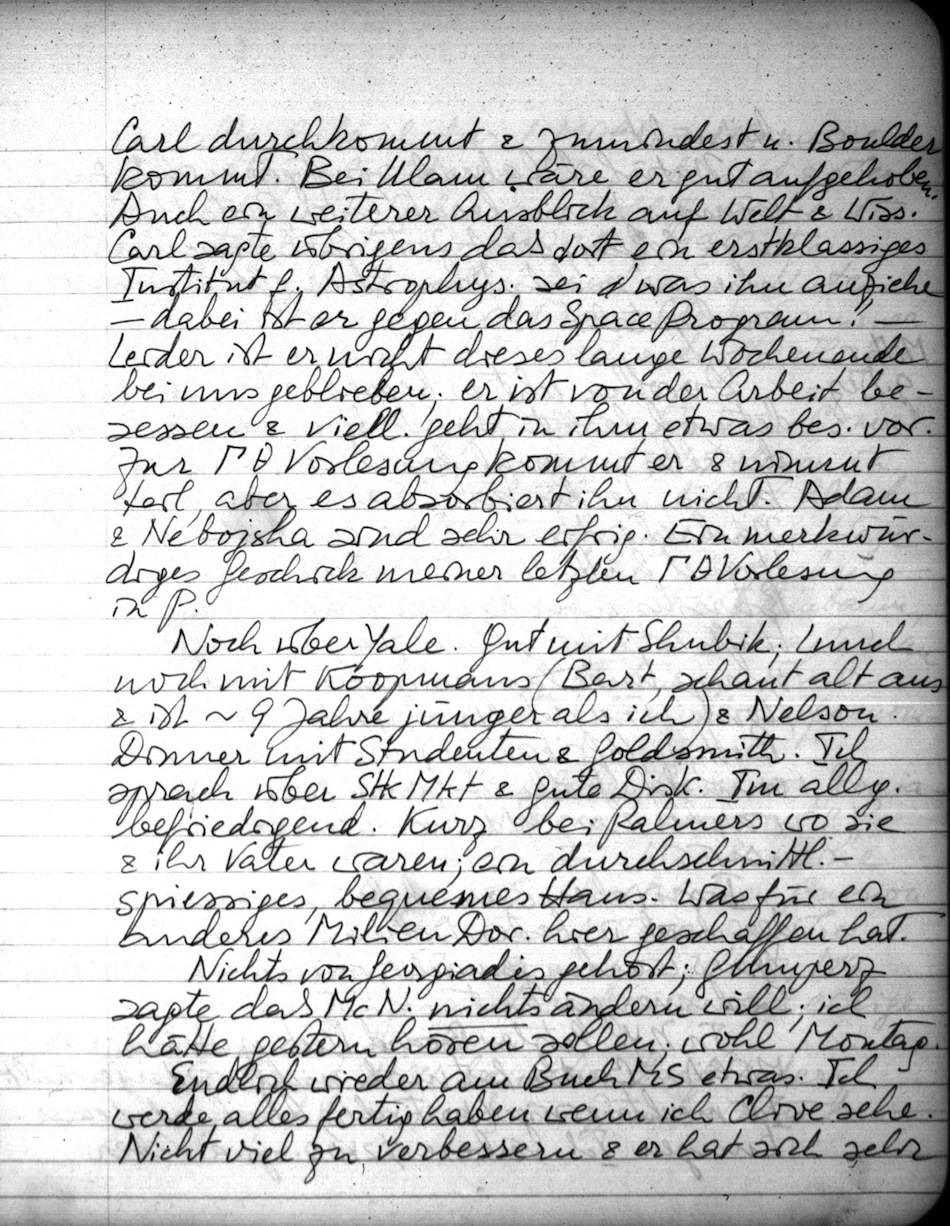 Carl durchkommt & zumindest n. Boulder
kommt. Bei Ulam wäre er gut aufgehoben.
Auch ein weiterer Ausblick auf Welt & Wiss.
Carl sagte übrigens daß dort ein erstklassiges
Institut f. Astrophys. sei & was ihn anziehe
— dabei ist er gegen das Space Program! —
Leider ist er nicht dieses lange Wochenende
bei uns geblieben; er ist von der Arbeit be-
sessen & viell. geht in ihm etwas bes. vor.
Zur Γθ Vorlesung kommt er & nimmt
teil, aber es absorbiert ihn nicht. Adam
& Nebojsha sind sehr eifrig. Ein merkwür-
diges Geschick meiner letzten Γθ Vorlesung
in P.
Noch über Yale. Gut mit Shubik; Lunch
noch mit Koopmans (Bert, schaut alt aus
& ist ~ 9 Jahre jünger als ich) & Nelson.
Dinner mit Studenten & Goldsmith. Ich
sprach über Stk Mkt & gute Disk. Im allg.
befriedigend. Kurz bei Palmers wo sie
& ihr Vater waren; ein durchschnittl.-
spiessiges, bequemes Haus. Was für ein
anderes Milieu Dor. hier geschaffen hat.
Nichts von Georgiadis gehört; Gumperz
sagte daß McN. nichts ändern will; ich
hätte gestern hören sollen; wohl Montag.
Endlich wieder am Buch MS etwas. Ich
werde alles fertig haben wenn ich Clive sehe.
Nicht viel zu verbessern & er hat sich sehr